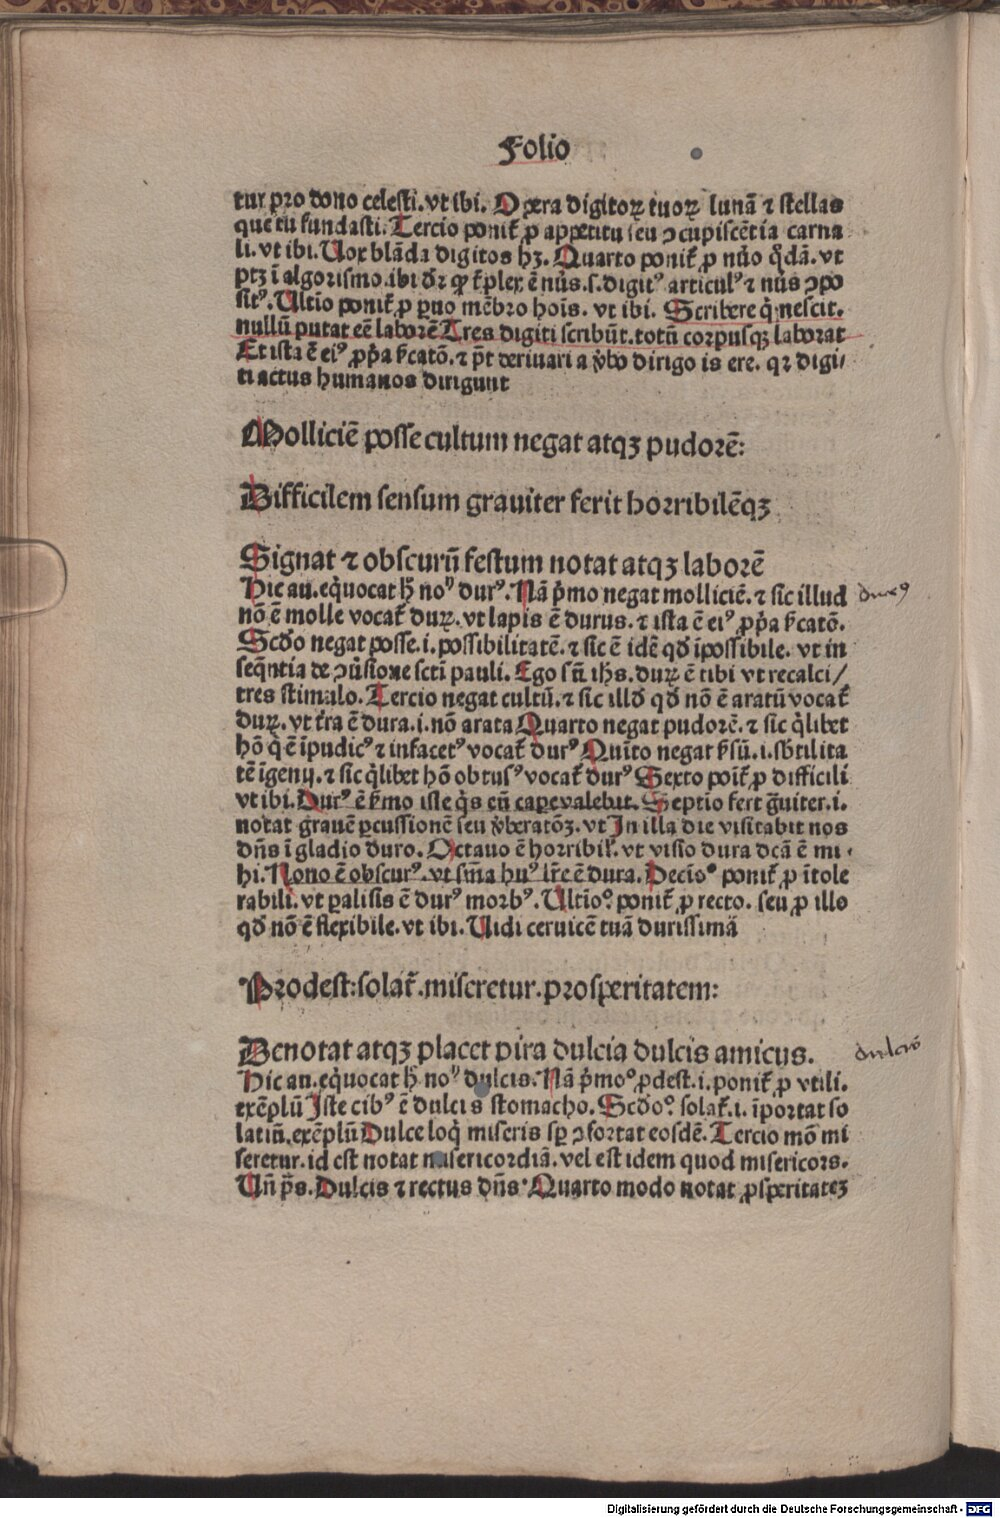 Folio
tur pro dono celesti. vt ibi. Opera digitoꝝ tuoꝝ lunā ⁊ stellas
que tu fundasti. Tercio ponit᷑ ꝓ appetitu seu ꝯcupiscētia carna
li. vt ibi. Uox blāda digitos hꝫ. Quarto ponit᷑ ꝓ nūo q̄dā. vt
ptꝫ ī algorismo. ibi dr̄ ꝙ t᷑plex ē nūs. s. digitꝰ articulꝰ ⁊ nūs ꝯpo
sitꝰ. Ultīo ponit᷑ ꝓ ꝑuo mēbro hoīs. vt ibi. Scribere q̇ nescit.
nullū putat eē laborē Tres digiti scribūt. totū corpusqꝫ laborat
Et ista ē eiꝰ ꝓp̄a s̄catō. ⁊ p̄t deriuari a v̄bo dirigo is ere. qꝛ digi/
ti actus humanos dirigunt
Molliciē posse cultum negat atqꝫ pudorē:
Difficilem sensum grauiter ferit horribilēqꝫ
Signat ⁊ obscurū festum notat atqꝫ laborē
Hic au. eq̇uocat h̄ noᵐ durꝰ. Nā p̄mo negat molliciē. ⁊ sic illud
durꝰ
nō ē molle vocat᷑ duꝝ. vt lapis ē durus. ⁊ ista ē eiꝰ ꝓp̄a s̄catō.
Scd̄o negat posse. i. possibilitatē. ⁊ sic ē idē qd̄ īpossibile. vt in
seq̄ntia de ꝯūsione scti pauli. Ego sū ihs. duꝝ ē tibi vt recalci/
tres stimulo. Tercio negat cultū. ⁊ sic illd̄ qd̄ nō ē aratū vocat᷑
duꝝ. vt t᷑ra ē dura. i. nō arata Quarto negat pudorē. ⁊ sic q̇libet
hō q̇ ē īpudicꝰ ⁊ infacetꝰ vocat᷑ durꝰ Quīto negat s̄sū. i. sb̄tilita
tē īgenij. ⁊ sic q̇libet hō obtusꝰ vocat᷑ durꝰ Sexto poīt᷑ ꝓ difficili
vt ibi. Durꝰ ē s̄mo iste q̇s eū caꝑe valebit. Septīo fert ḡuiter. i.
notat grauē ꝑcussionē seu v̄beratōꝫ. vt In illa die visitabit nos
dn̄s ī gladio duro. Octauo ē horribil᷑. vt visio dura dcā ē mi
hi. Nono ē obscurꝰ. vt sn̄ia huꝰ lr̄e ē dura. Decīsꝰ ponit᷑ ꝓ ītole
rabili. vt ꝑalisis ē durꝰ morbꝰ. Ultīoꝰ. ponit᷑ ꝓ recto. seu ꝓ illo
qd̄ nō ē flexibile. vt ibi. Uidi ceruicē tuā durissimā
Prodest: solat᷑. miseretur. prosperitatem:
Denotat atqꝫ placet pira dulcia dulcis amicus.
dulcis
Hic au. eq̇uocat h̄ noᵐ dulcis. Nā p̄moꝰ ꝓdest. i. ponit᷑ ꝓ vtili.
exēplū Iste cibꝰ ē dulcis stomacho. Scd̄oꝰ. solat᷑. i. īportat so
latiū. exēplū Dulce loq̇ miseris sꝑ ꝯfortat eosdē. Tercio mō mi
seretur. id est notat misericordiā. vel est idem quod misericors.
Uñ p̄s. Dulcis ⁊ rectus dn̄s. Quarto modo notat ꝓsperitateꝫ
Digitalisierung gefördert durch die Deutsche Forschungsgemeinschaft - DFG